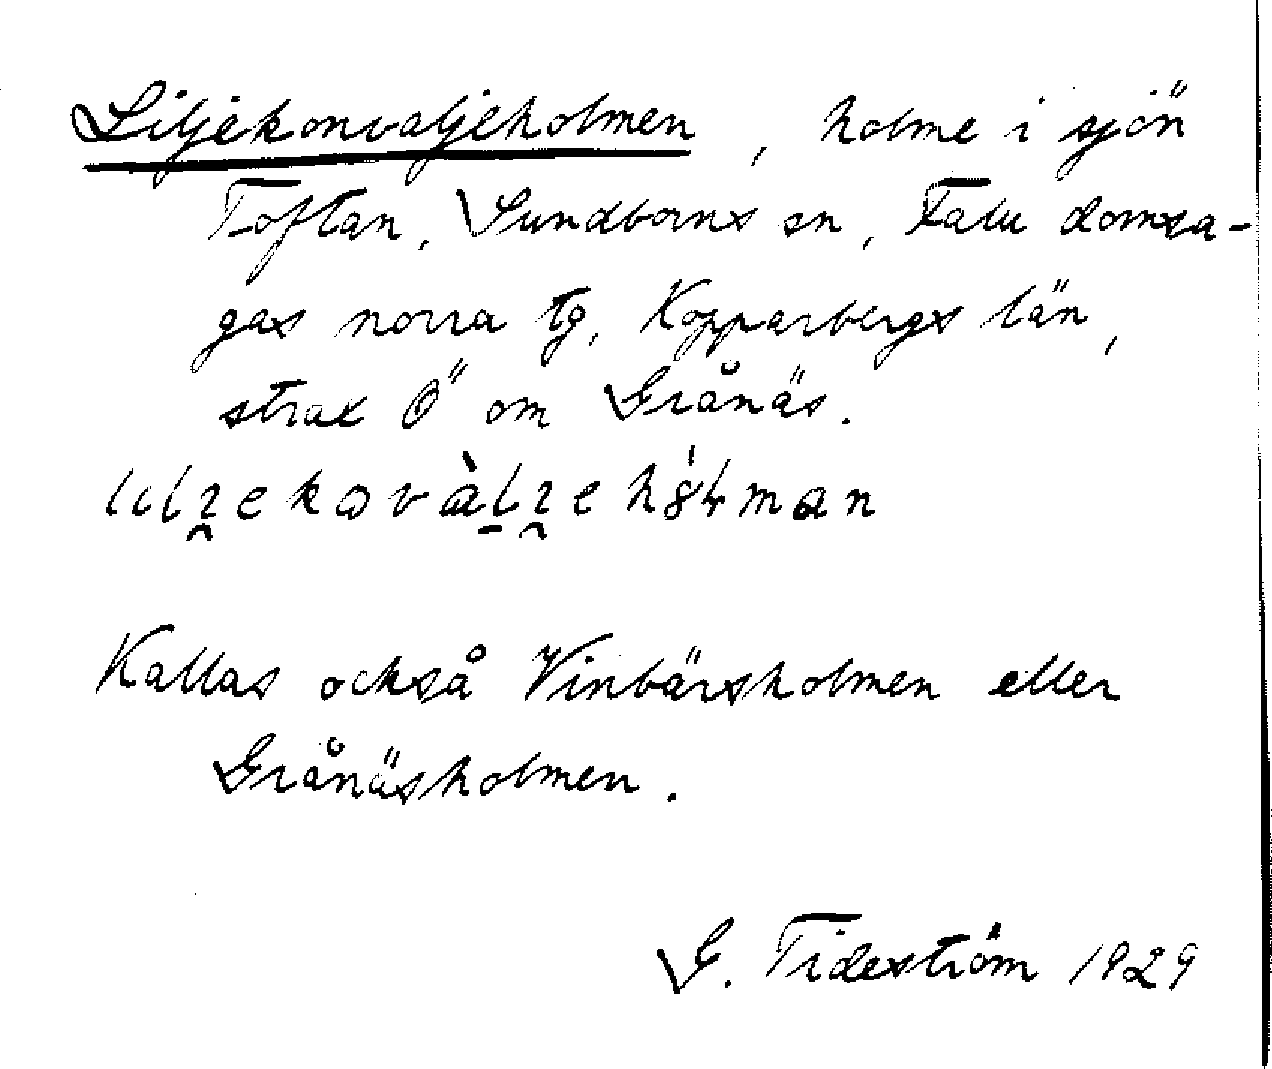 Liljekonvaljeholmen, holme i sjön
Toftan, Sundborns sn, Falu domsa-
gas norra tg, Kopparbergs län,
strax Ö om Grånäs.
Kallas också Vinbärsholmen eller
Grånäsholmen.
G. Tideström 1929